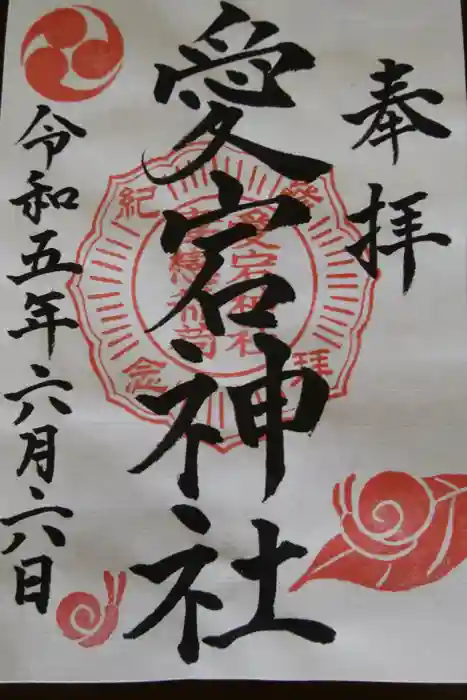 奉拝
愛宕神社
令和五年六月六日
参拝
紀念
愛宕神社